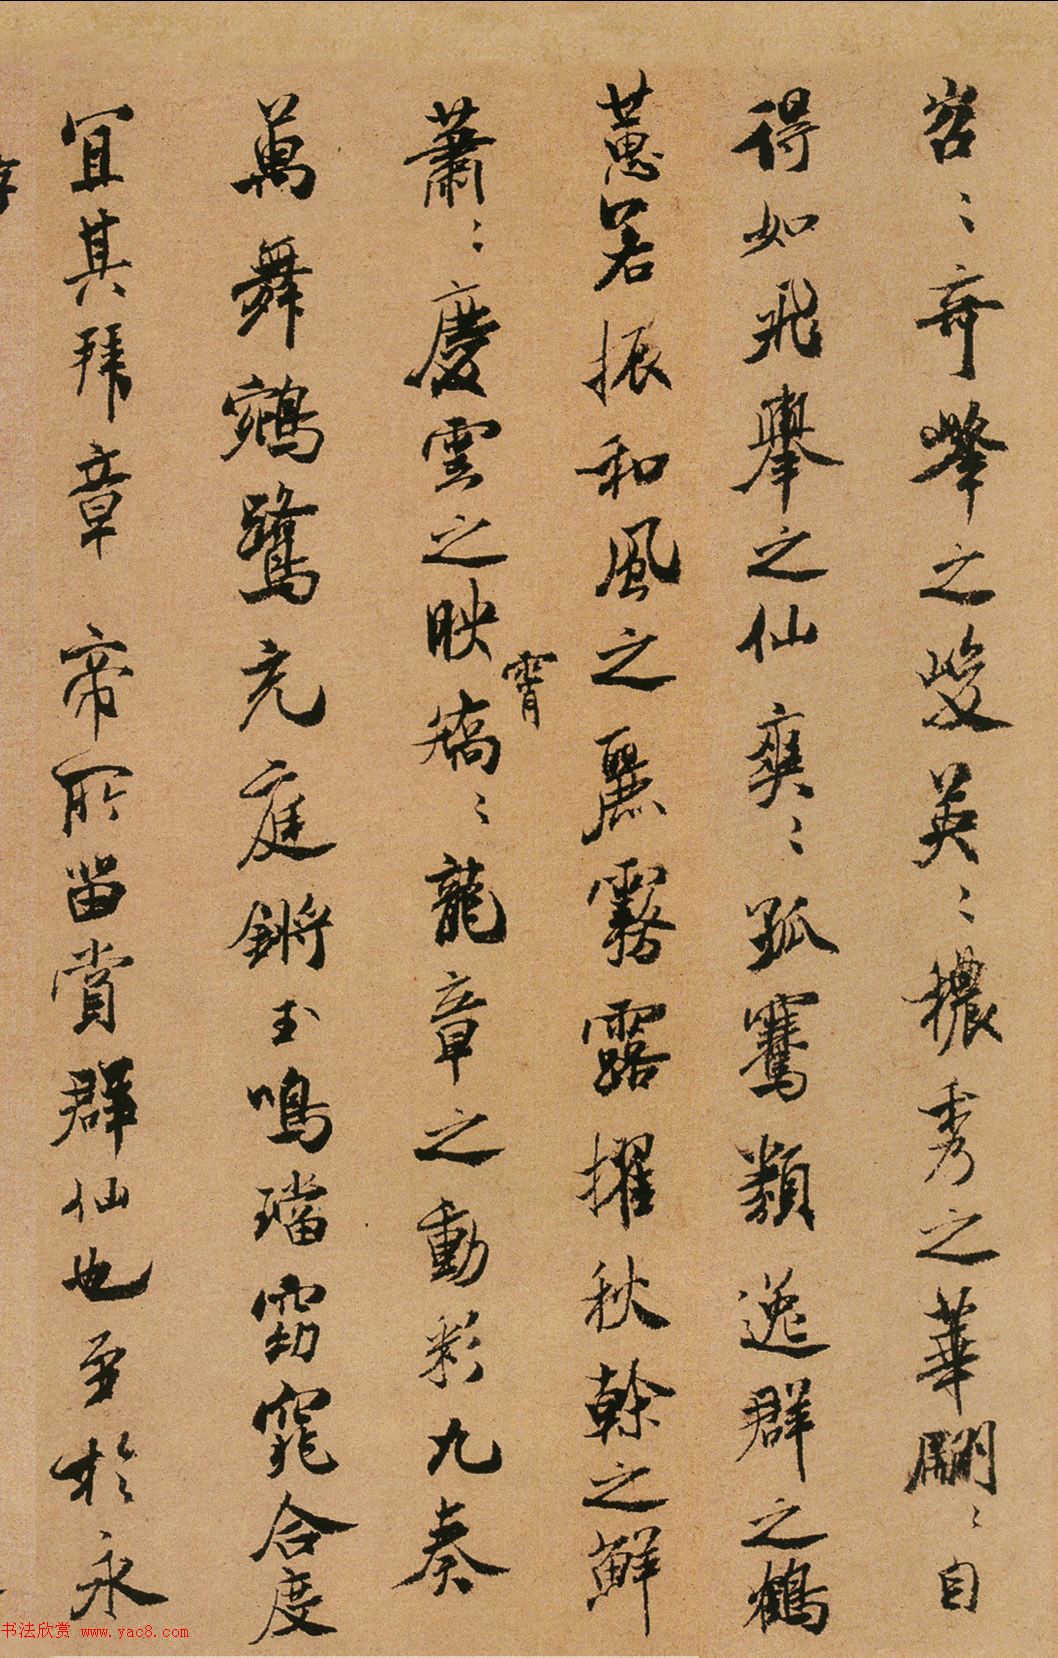 岧〻奇峯之峻英〻穠秀之華翩〻自
得如飛舉之仙爽〻孤騫類逸群之鶴
蕙若振和風之麗霧露擢秋榦之鮮
蕭〻慶雲之映霄矯〻龍章之動彩九奏
萬舞鵷鷺充庭鏘玉鳴璫窈窕合度
宜其拜章帝所留賞群仙也至於永
书法欣赏 www.yac8.com